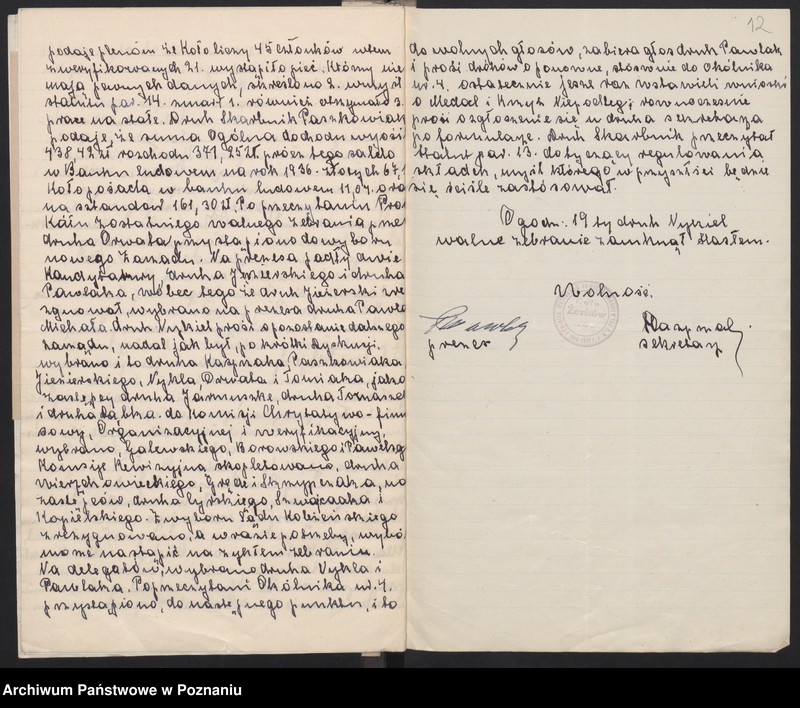 podaje plenóm że Koło liczy 45 członków w tem
zweryfikowanych 21. wystąpiło pięć. Którzy nie
mają pewnych danych, skreślono 2. w myśl
statutu par. 14. zmarł 1. również otrzymało 3.
prace na stałe. Druh Skarbnik Paszkowiak
podaje, że suma Ogólna dochodu wynosi
438,42 zł rozchodu 371,25 zł prócz tego saldo
w Banku ludowem na rok 1936. złotych 67,1
Koło posiada w banku ludowem 11,04. ora
na sztandar 161,30 zł. Po przeczytaniu Pro
Kółu z ostatniego walnego zebrania prze
druha Orwata przystąpiono do wyboru
nowego Zarządu. Na prezesa padły dwie
Kandydatury druha Jezierskiego i druha
Pawlaka, wobec tego że druh Jezierski zre
zygnował, wybrano na prezesa druha Pawla
Michała. druh Nykiel prosi o pozostanie dalszego
zarządu, nadal jak był, po krótki dyskusji.
wybrano i to druha Kaźmaka, Paszkowiaka
Jezierskiego, Nykla, Orwata i Tomiaka, jako
zastępcy druha Jarmuszkę, druha Tomasze
i druha Bąbka. do Komisji Charytatywno-finn
sowy, Organizacyjnej i weryfikacyjny,
wybrano, Galewskiego, Borowskiego i Pawelsg
Komisje Rewizyjna skopletowano, druha
Wierzchowieckiego, Grędę i Skrzypczaka, na
zastępców, druha Cyrskiego, Szwączaka i
Kopielskiego. Z wyboru Sądu Koleżeńskiego
zrezygnowano, a w razie potrzeby, wybór
może nastąpić na zykłem zebraniu.
Na delegatów, wybrano druha Nykla i
Pawlaka. Poprzeczytani Okólnika nr. 4.
przystąpiono, do następnego punktu, i to
12
do wolnych głosów, zabiera głos druh Pawlak
i prosi druhów o ponowne, stosownie do Okólnika
nr. 4. ostatecznie jeszcze raz wstawieli wnioski
o Medal i Krzyż Niepodległ; równocześnie
prosi o zgłoszenie się u druha sekretarza
po formularze. Druh Skarbnik przeczytał
statut par. 13. dotyczący regulowania
składek, myśl którego w przyszłości będzie
się ściśle zastosował.
O godz: 19 tej druh Nykiel
walne zebranie zamknął Hasłem.
Wolność.
prezes
sekretarz
Archiwum Państwowe w Poznaniu